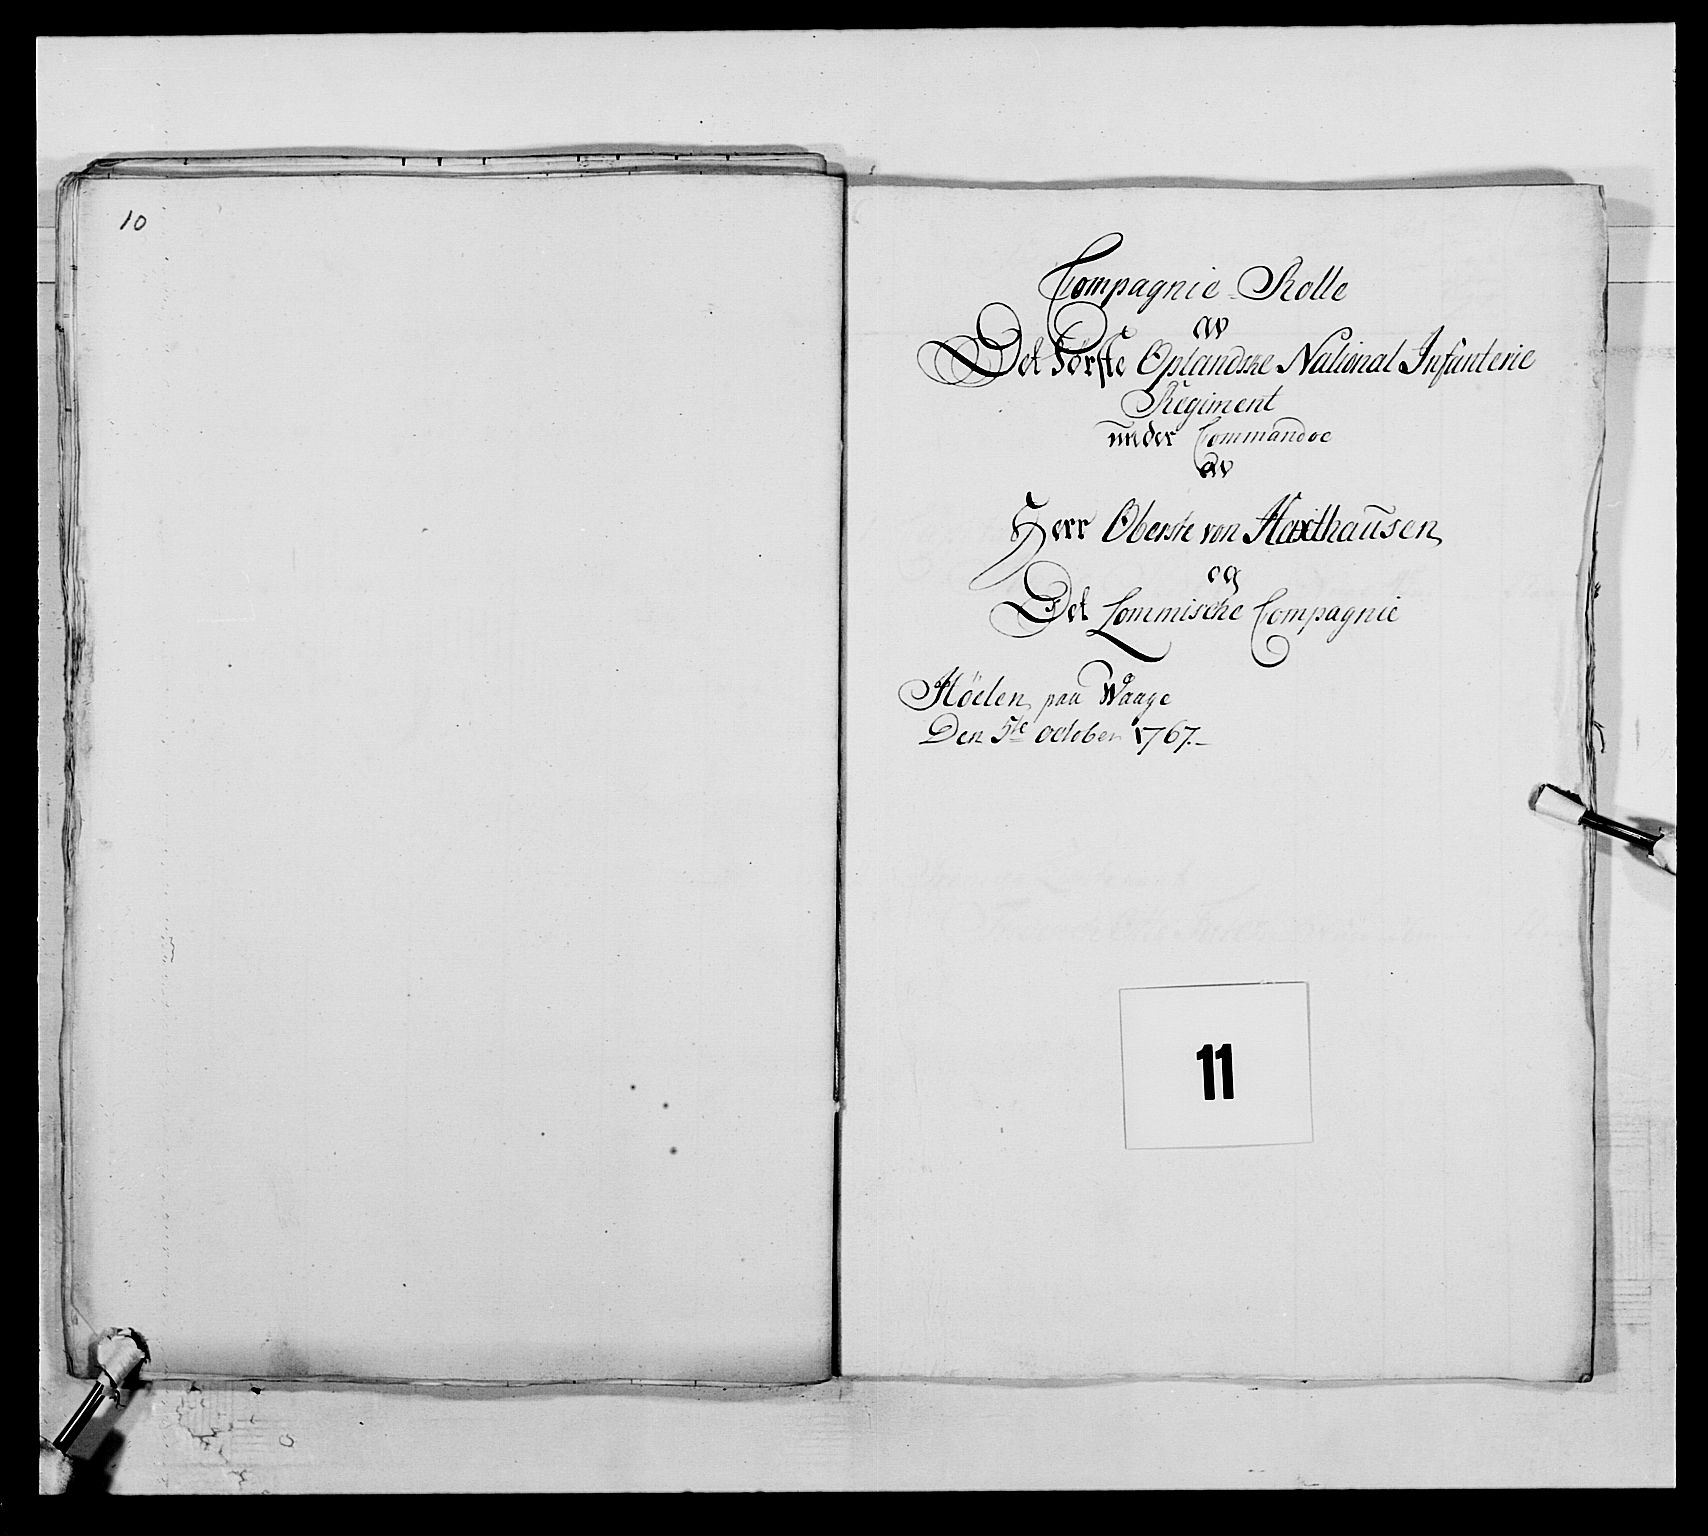 10
Compagnie Rolle
av
Det Første Oplandske National Infanterie
Regiment
under Commandoe
av
Herr Oberste von Haxthausen
og
Det Lommische Compagnie
Höelen paa Waage
Den 5te october 1767.
11